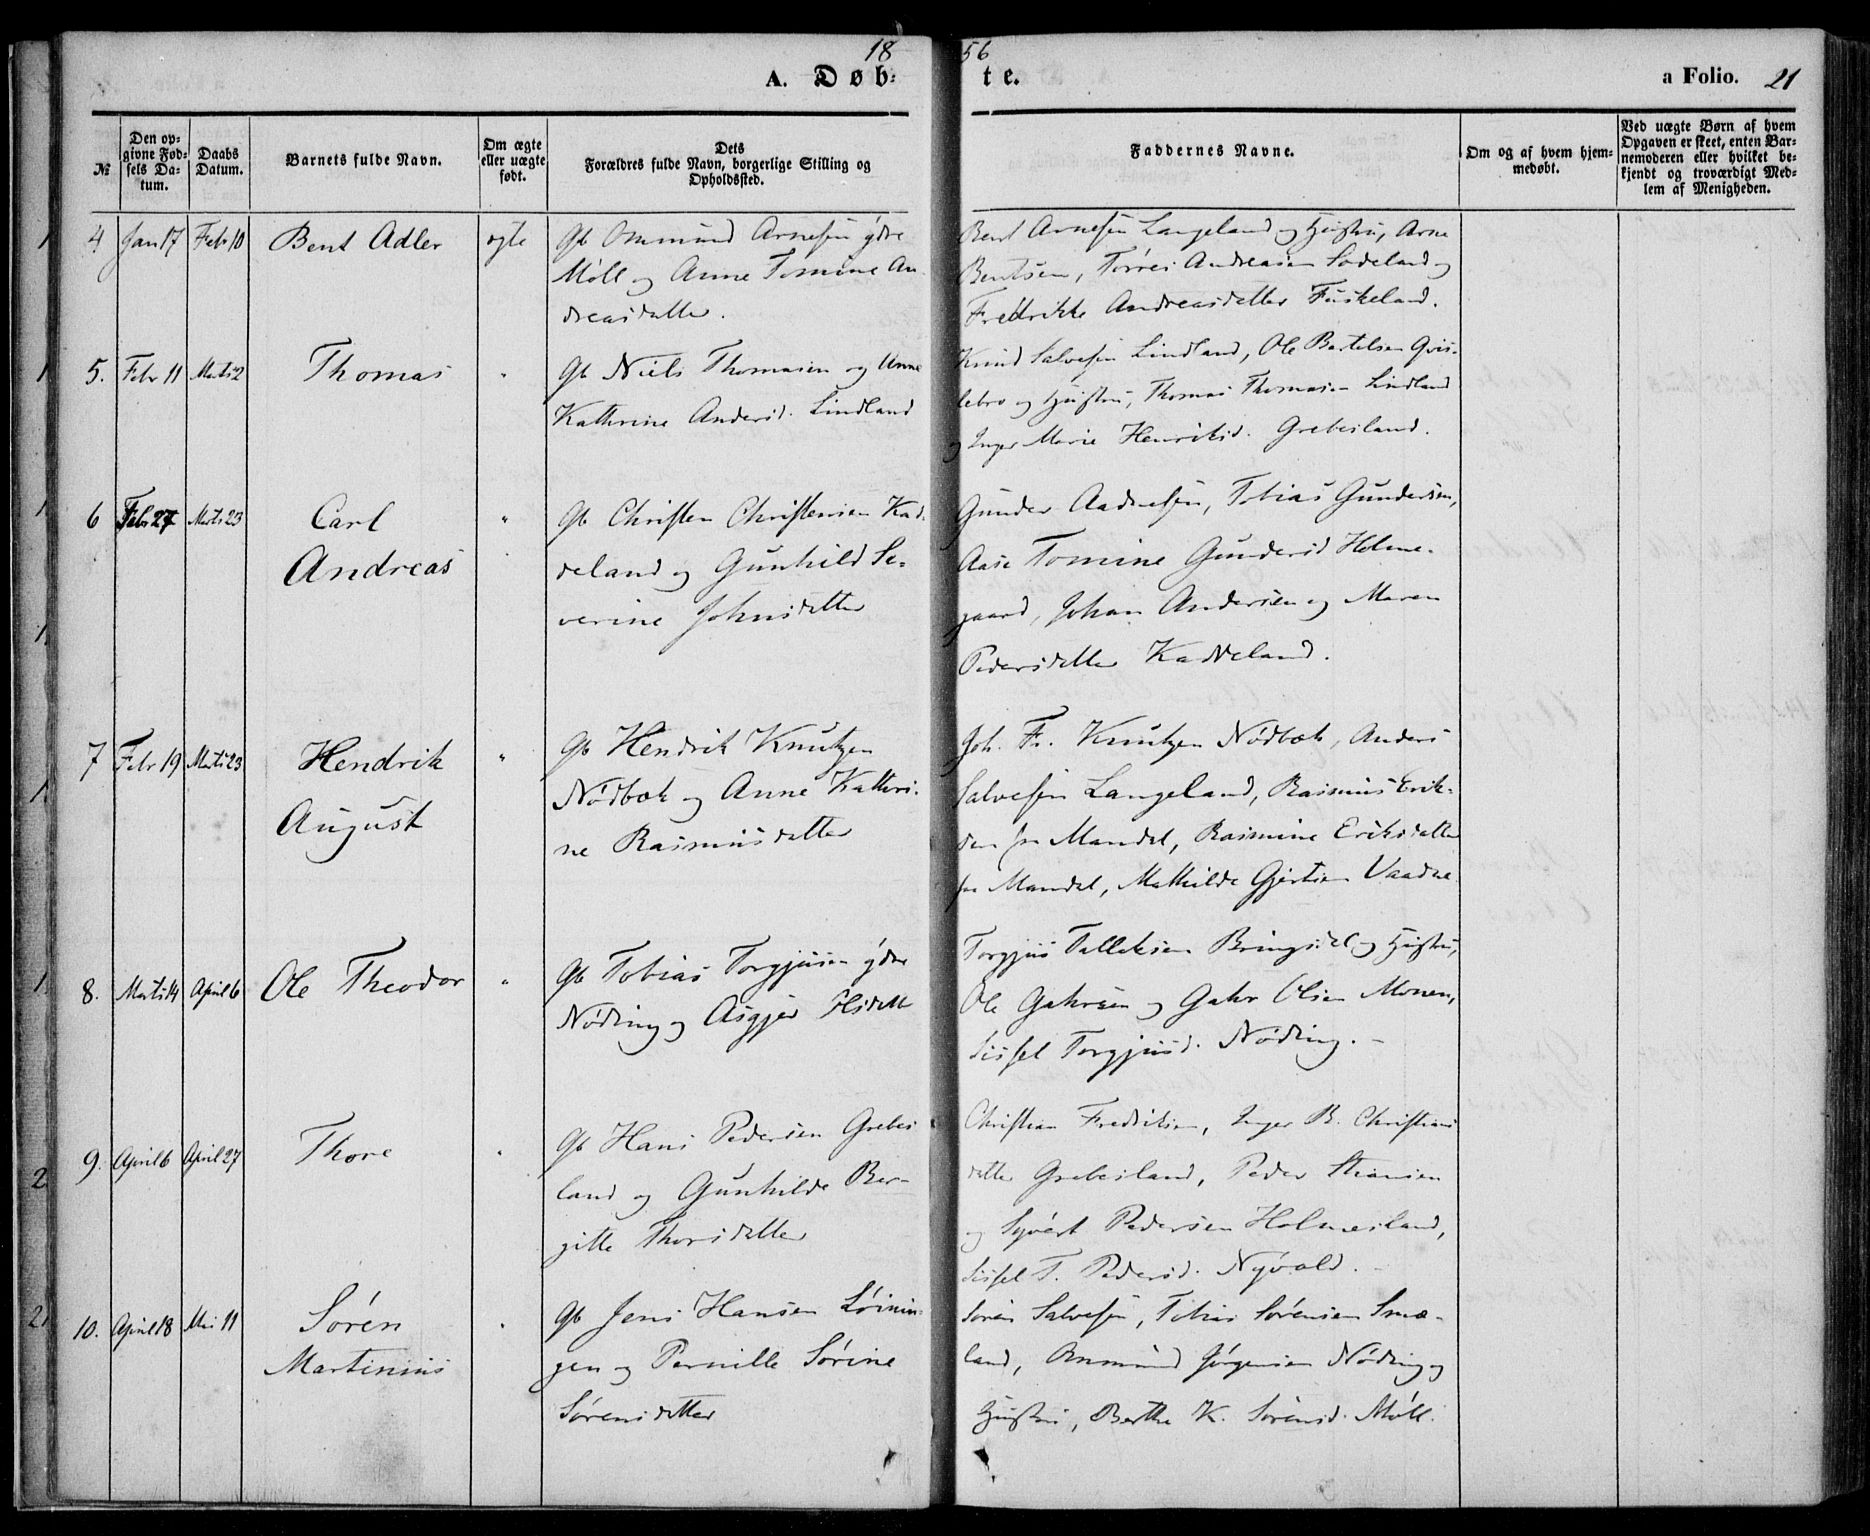 1856
A. Døbte.
a Folio. 21
№
Den opgivne Fødsels Datum.
Daabs Datum.
Barnets fulde Navn.
Om ægte eller uægte født.
Dets Forældres fulde Navn, borgerlige Stilling og Opholdssted.
Faddernes Navne.
Om og af hvem hjemmedøbt.
Ved uægte Børn af hvem Opgaven er skeet, enten Barnemoderen eller hvilket bekjendt og troværdigt Medlem af Menigheden.
4 Jan 17 Febr 10 Bent Adler ægte Gb Ommund Arnesen ydre
Møll og Anne Tomine An-
dreasdatter.
Bent Arnesen Langeland og Hustru, Arne
Bentsen, Torres Andreasen Sodeland og
Fredrikke Andreasdatter Fuskeland.
5. Febr 11 Marts 2 Thomas " Gb Niels Thomasen og Anne
Kathrine Andersd. Lindland
Knud Salvesen Lindland, Ole Bertelsen Qvis-
lebro og Hustru, Thomas Thomasen Lindland
og Inger Marie Henriksd. Grebesland.
6 Febr 27 Marts 23 Carl
Andreas
" Gb Christen Christensen Kad-
deland og Gunhild Se-
verine Johnsdatter
Gunder Aadnesen, Tobias Gundersen,
Aase Tomine Gundersd Holme-
gaard, Johan Andersen og Maren
Pedersdatter Kaddeland.
7 Febr 19 Marts 23 Hendrik
August
" Gb Hendrik Knutzen
Nødbæk og Anne Kathri-
ne Rasmusdatter
Joh. Fr. Knutzen Nødbæk, Anders
Salvesen Langeland, Rasmus Erik-
sen fra Mandal, Rasmine Eriksdatter
fra Mandal, Mathilde Gjertsen Vaadne
8. Marts 14 April 6 Ole Theodor " Gb Tobias Torgjusen ydre
Nøding og Asgjer Olsdatt
Torgjus Tallaksen Bringsdal og Hustru,
Ole Gahrsen og Gahr Olsen Monen,
Sissel Torgjusd. Nøding.
9. April 6 April 27 Thore " Gb Hans Pedersen Grebes
land og Gunhilde Ber-
gitte Thorsdatter
Christian Fredriksen, Inger B. Christians
datter Grebesland, Peder
og Syvert Pedersen Holmesland,
Sissel T. Pedersd. Nyvold.
10. April 18 Mai 11 Søren
Martinius
" Gb Jens Hansen Løinin-
gen og Pernille Sørine
Sørensdatter
Søren Salvesen, Tobias Sørensen Smæ-
land, Ommund Jørgensen Nøding og
Hustru, Berthe K. Sørensd. Møll.